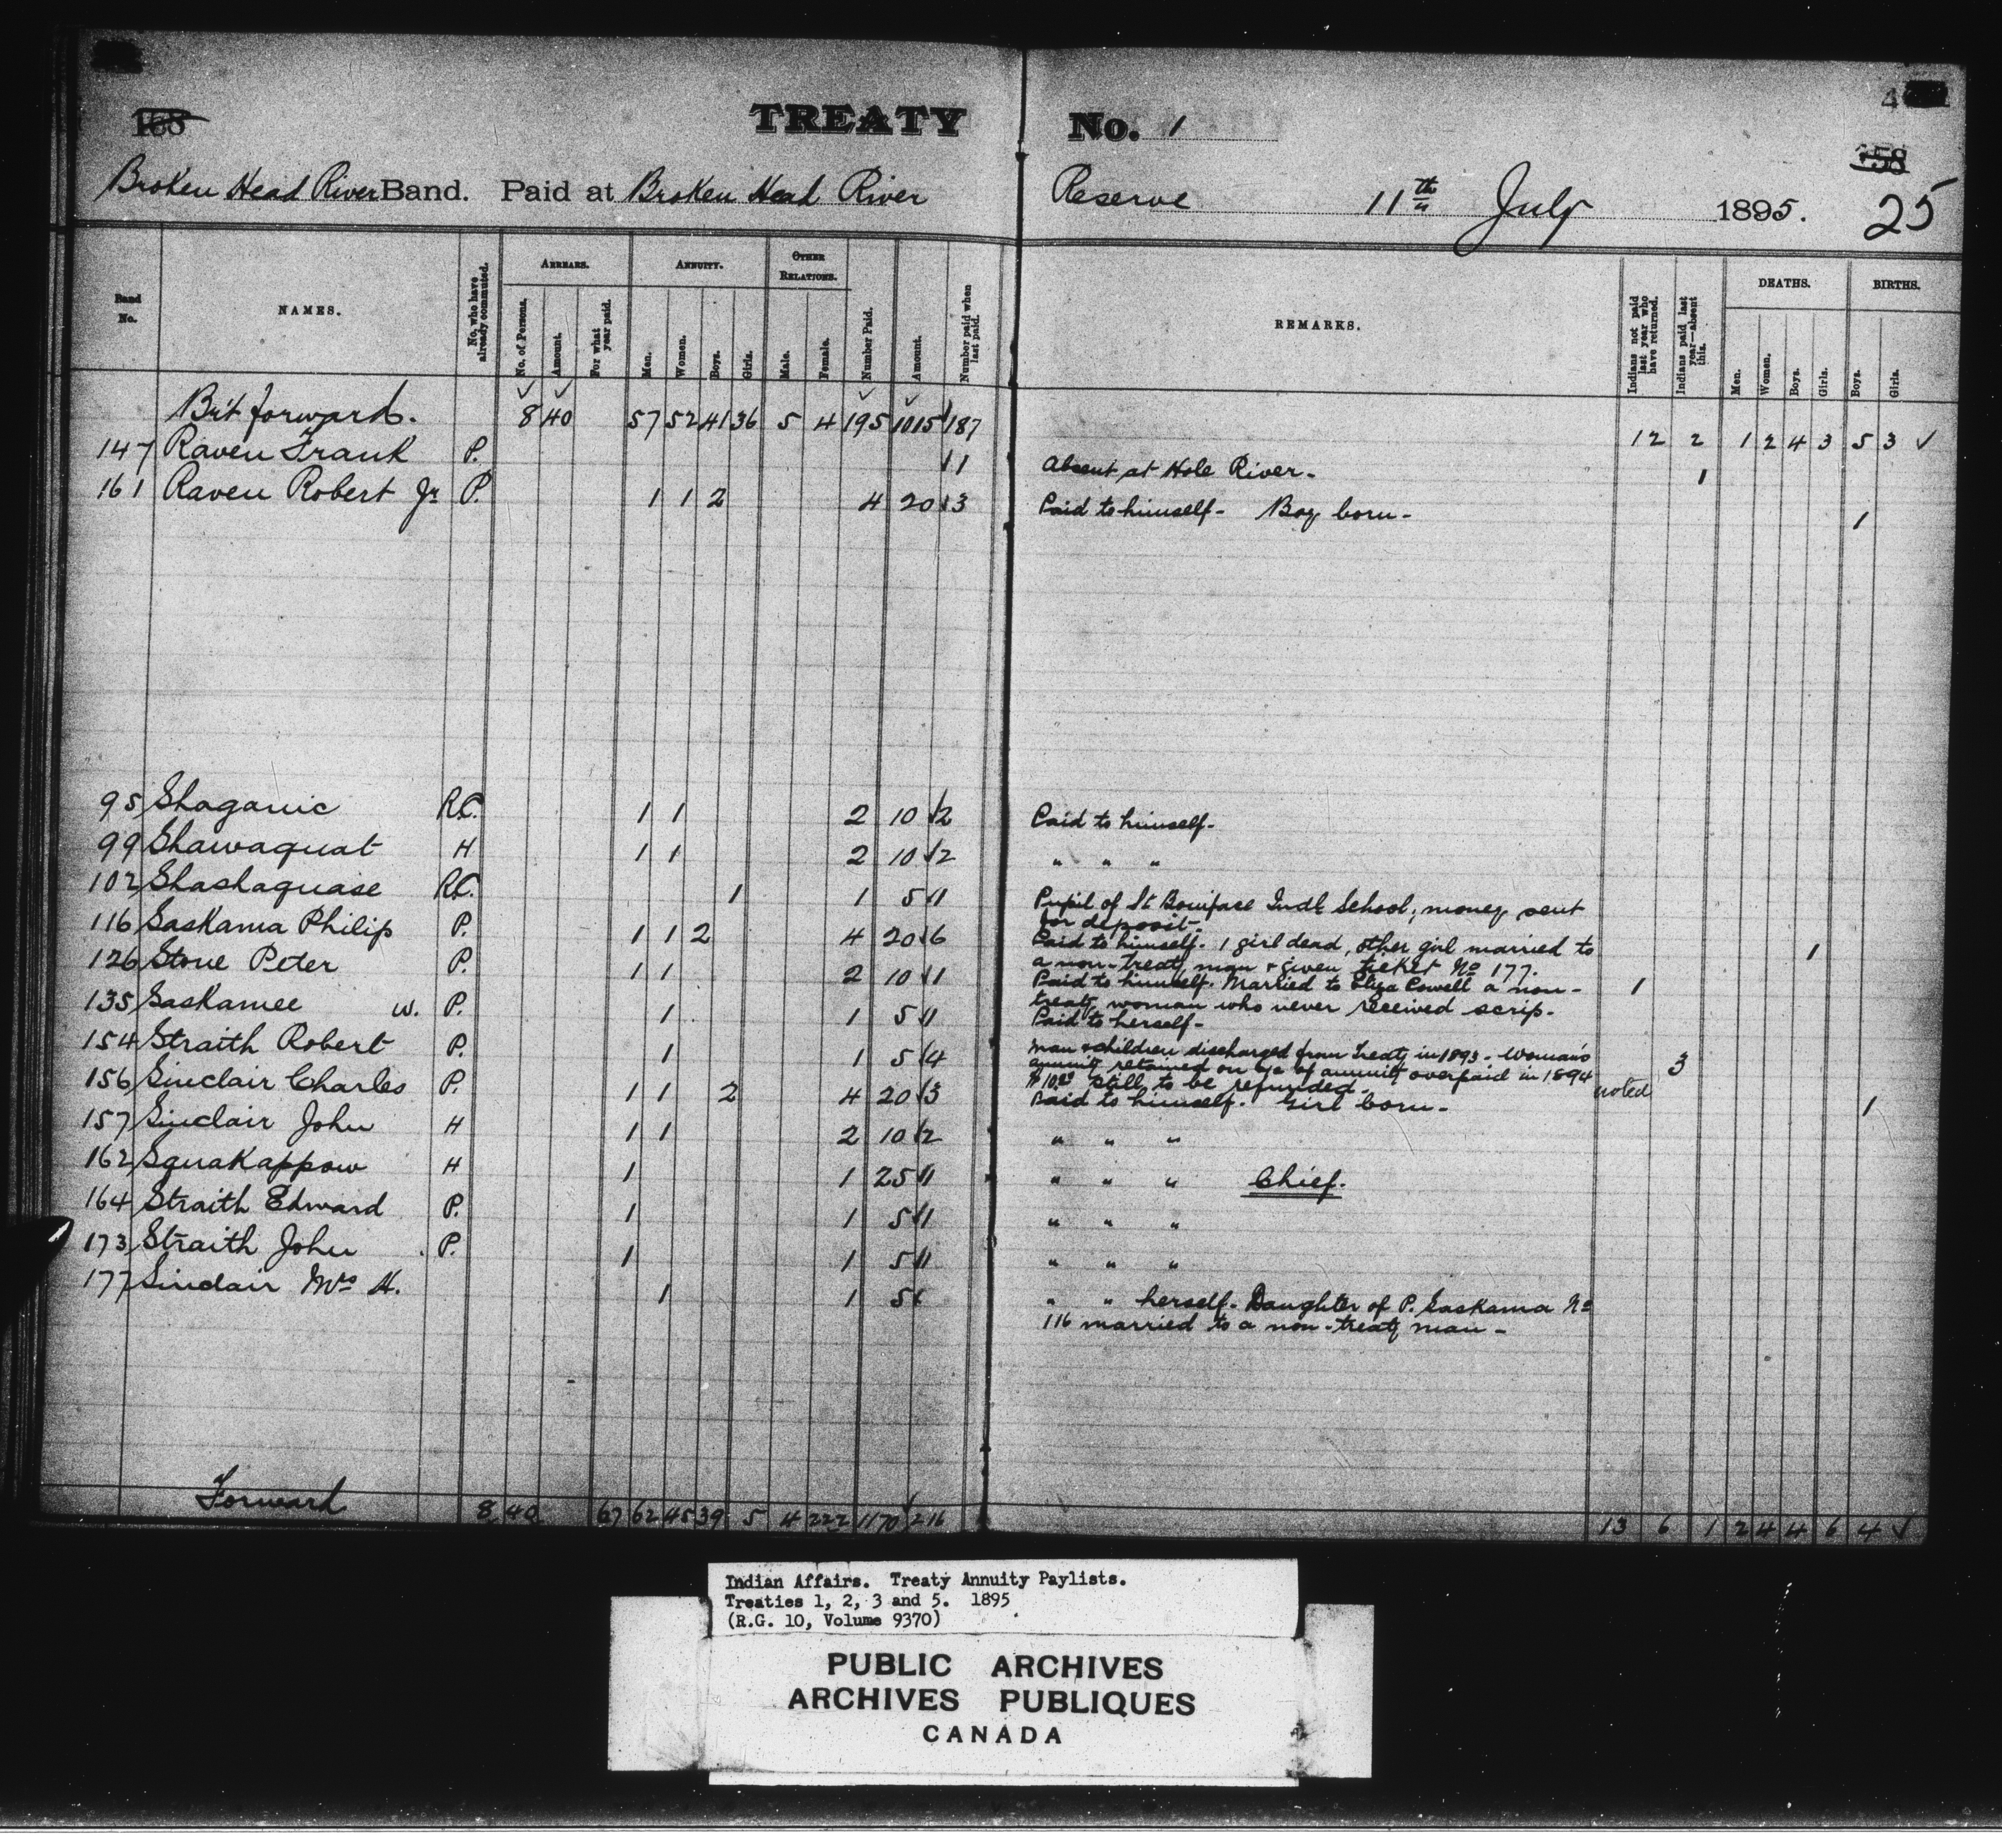 168
TREATY No. 1
4
158
Broken Head River Band. Paid at Broken Head River Reserve 11th July 1895. 25
Band No.
NAMES.
No. who have already commuted.
ARREARS.
No. of Persons.
Amount.
For what year paid.
ANNUITY.
Men.
Women.
Boys.
Girls.
OTHER RELATIONS.
Male.
Female.
Number Paid.
Amount.
Number paid when last paid.
REMARKS.
Indians not paid last year who have returned.
Indians paid last year—absent this.
DEATHS.
Men.
Women.
Boys.
Girls.
BIRTHS.
Boys.
Girls.
Br't forward. 8 40 57 52 41 36 5 4 195 1015 187 12 2 1 2 4 3 5 3 ✓
147 Raven Frank P. 1 Absent at Hole River. 1
161 Raven Robert Jr P. 1 1 2 4 20 3 Paid to himself - Boy born - 1
95 Shaganic R.C. 1 1 2 10 2 Paid to himself.
99 Shawaquat H 1 1 2 10 2 " " "
102 Shashaquase R.C. 1 1 5 1 Pupil of St Boniface Indl School; money sent
for deposit.
116 Saskama Philip P. 1 1 2 4 20 6 Paid to himself. 1 girl dead, other girl married to 1
a non-treaty man & given ticket No 177.
126 Stone Peter P. 1 1 2 10 1 Paid to himself. Married to Eliza Cowell a non- 1
treaty woman who never received scrip.
135 Saskamee w. P. 1 1 5 1 Paid to herself -
154 Straith Robert P. 1 1 5 4 Man & children discharged from Treaty in 1893 - Woman's 3
annuity retained on a/c of annuity overpaid in 1894
$10.00 still to be refunded. noted
156 Sinclair Charles P. 1 1 2 4 20 3 Paid to himself. Girl born - 1
157 Sinclair John H 1 1 2 10 2 " " "
162 Squakappow H 1 1 25 1 " " " Chief.
164 Straith Edward P. 1 1 5 1 " " "
173 Straith John P. 1 1 5 1 " " "
177 Sinclair Mrs H. 1 1 5 " " herself. Daughter of P. Saskama No
116 married to a non-treaty man -
Forward 8 40 67 62 45 39 5 4 222 1170 216 13 6 1 2 4 4 6 4 ✓
Indian Affairs. Treaty Annuity Paylists.
Treaties 1, 2, 3 and 5. 1895
(R.G. 10, Volume 9370)
PUBLIC ARCHIVES
ARCHIVES PUBLIQUES
CANADA